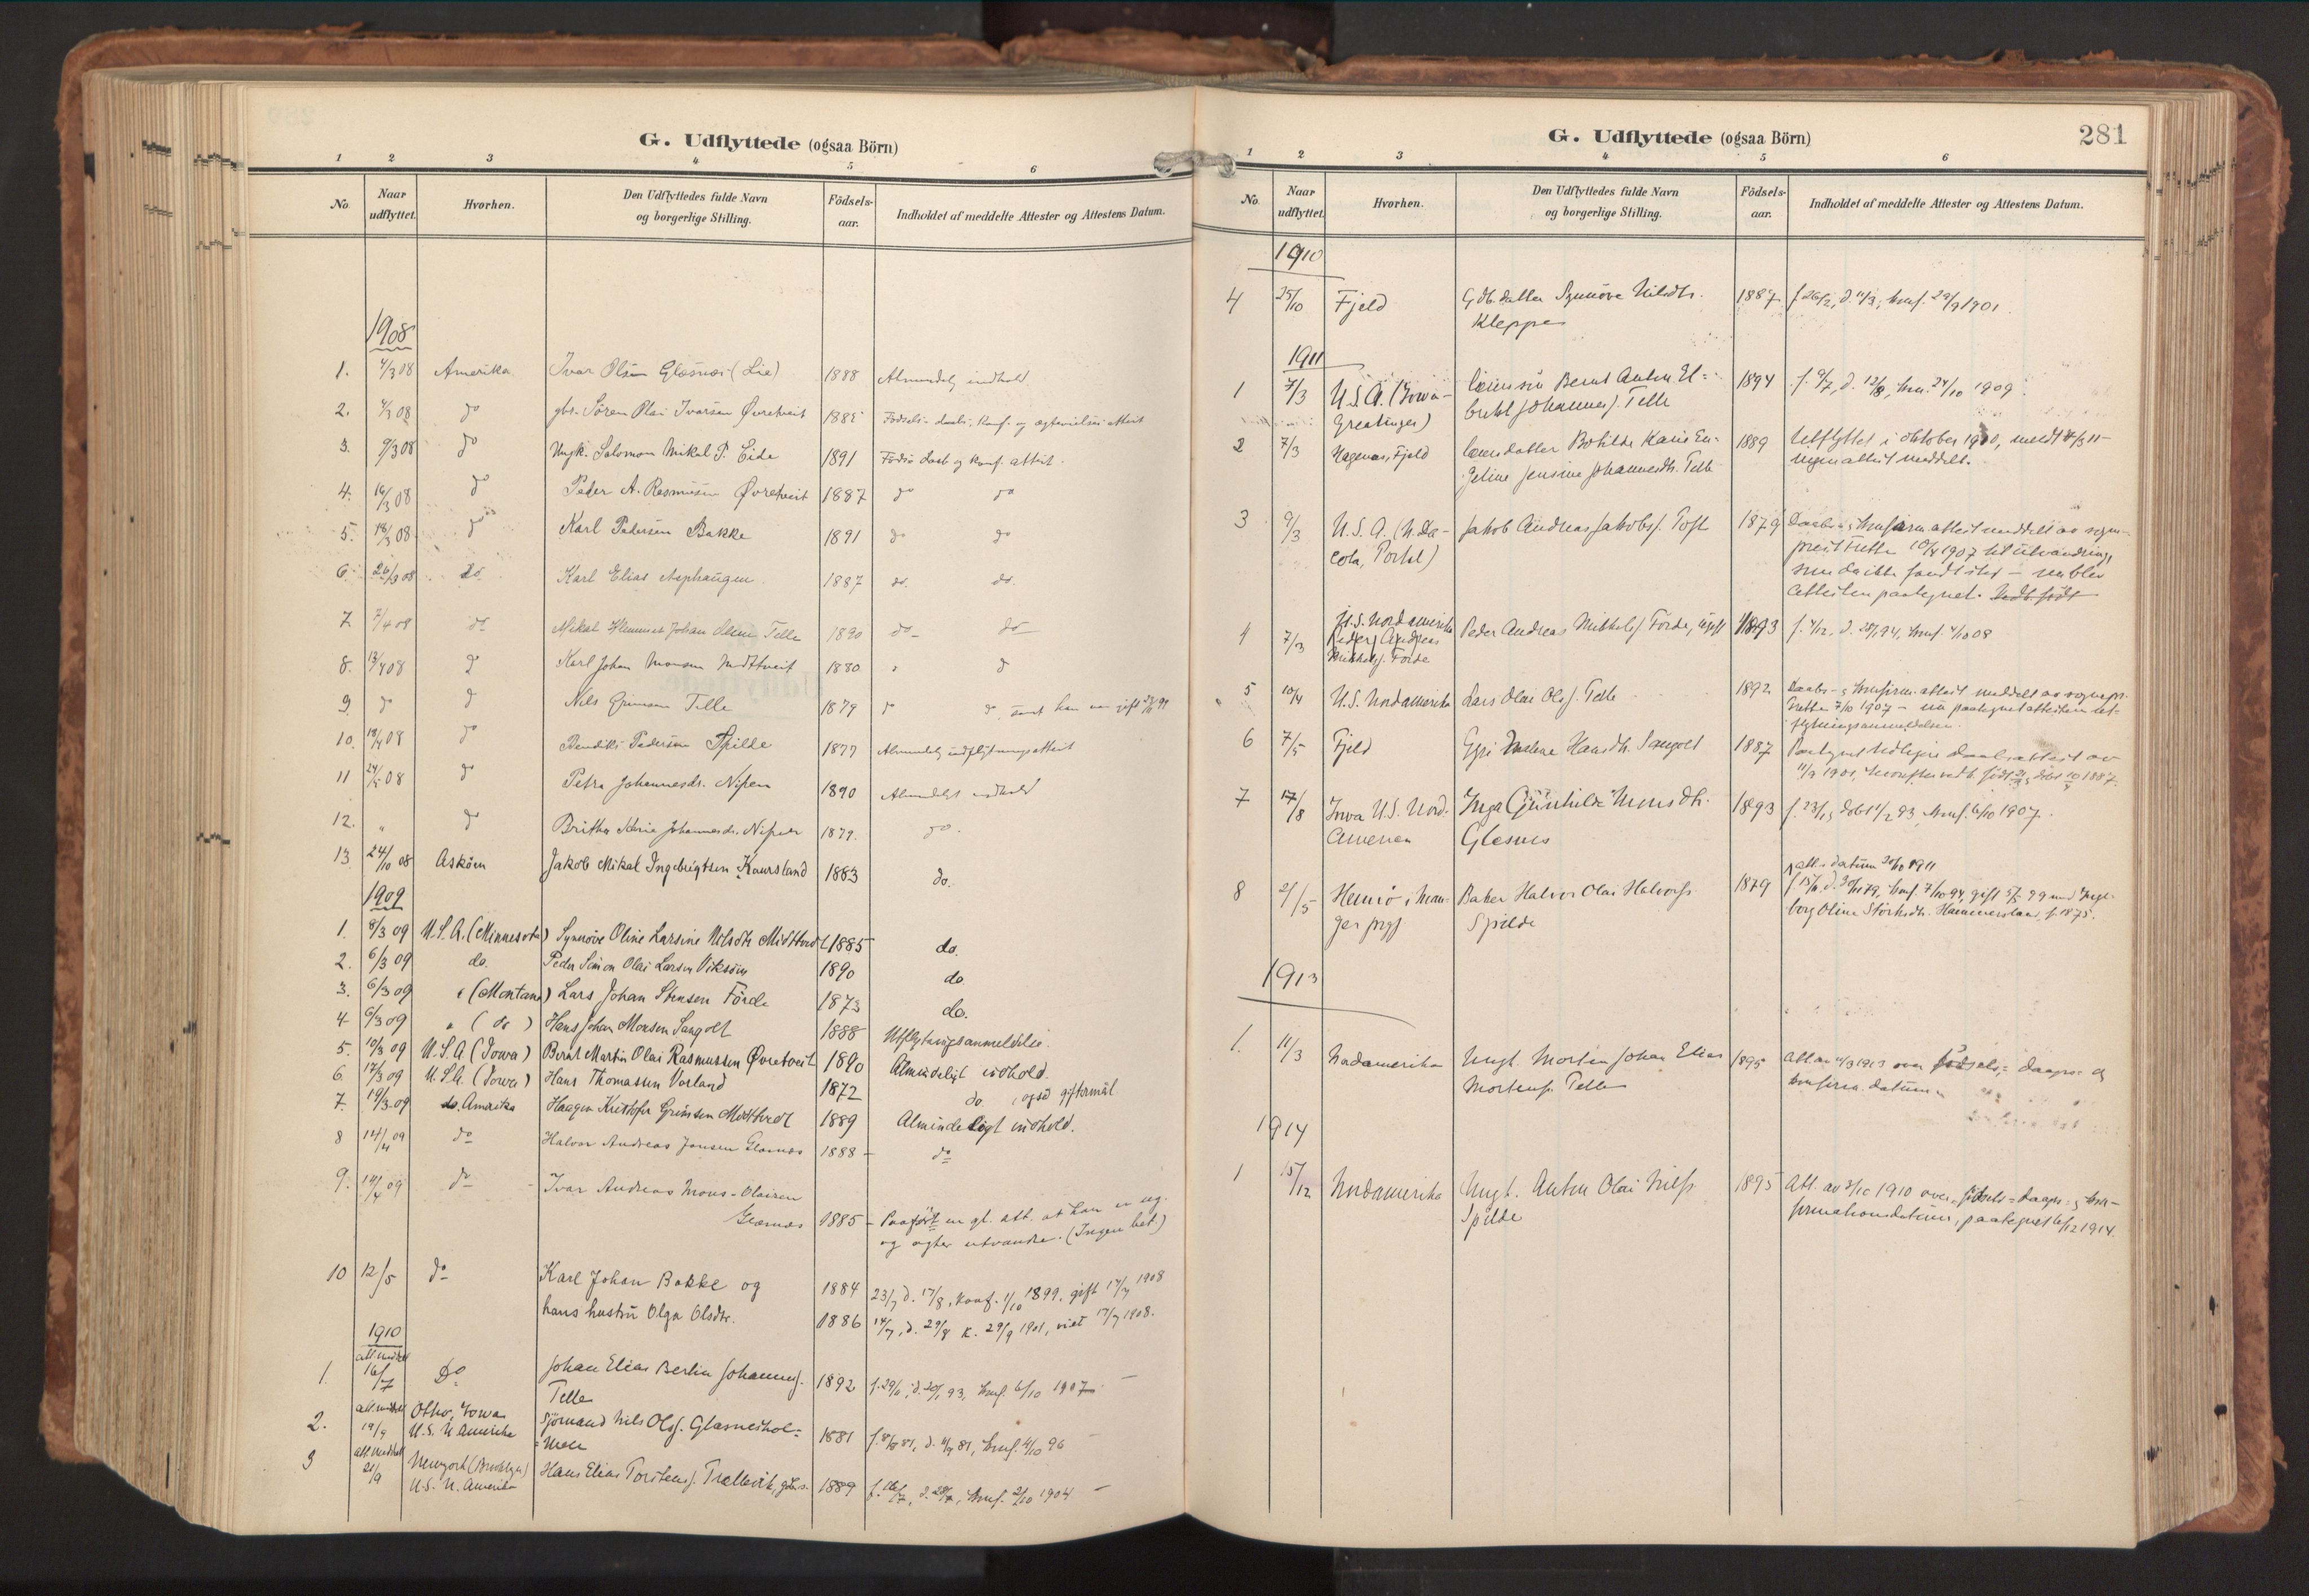 G. Udflyttede (ogsaa Börn)
1 2 3 4 5 6
No. Naar udflyttet. Hvorhen. Den Udflyttedes fulde Navn og borgerlige Stilling. Födselsaar. Indholdet af meddelte Attester og Attestens Datum.
1908
1. 4/3 08 Amerika Ivar Olsen Glæsnæs (Lie) 1888 Almindelig indhold
2. 4/3 08 do gbr. Sören Olai Ivarsen Øvretveit 1885 Födsels- daabs, Konf. og
3. 9/3 08 do Ungk. Salomon Mikal P. Eide 1891 Födsels daab og konf. attest.
4. 16/3 08 do Peder A. Rasmussen Øvretveit 1887 do do
5. 18/3 08 do Karl Pedersen Bakke 1891 do do
6. 26/3 08 do Karl Elias Asphaugen 1887 do. do.
7 7/4 08 do Mikal Johan Olsen Telle 1890 do do
8. 13/4 08 do Karl Johan Monsen Midttveit 1880 do
9 do do Nils Grimsen Telle 1879 do do, samt han er gift
10. 18/4 08 do Bendiks Pedersen Spilde 1877 Almindelig udflytningsattest
11 24/5 08 do Petra Johannesdr. Nipen 1890 Almindeligt indhold
12. " do Britha Johannesdr. Nipen 1879. do.
13 24/10 08 Askøen Jakob Mikal Ingebrigtsen Kaursland 1883 do.
1909
1. 8/3 09 U.S.A. (Minnesota) Synnöve Oline Larsine Nilsdtr Midttveit 1885 do.
2. 6/3 09 do. Peder Simon Olai Larsen Viksöen 1890 do
3. 6/3 09 " (Montana) Lars Johan Stensen Förde 1873 do.
4 6/3 09 " (do) Hans Johan Monsen Sangolt 1888 Utflytningsanmeldelse.
5. 10/3 09 U.S.A. (Iowa) Bernt Martin Olai Rasmussen Øvretveit 1890 Almindeligt indhold.
6. 17/3 09 U.S.A. (Iowa) Hans Thomassen Vorland 1872 do. , også giftermål
7. 19/3 09 do. Amerika Haagen Kristofer Grimsen Midttveit 1889 Almindeligt indhold.
8 14/4 09 do Halvor Andreas Jansen Glæsnæs 1888 - do
9. 14/4 09 do - Ivar Andreas Mons-Olaisen
Glæsnæs 1885 - Paaført en gl. att. at han er ug.
og agter utvandre. (Ingen bet.)
10 12/5 do Karl Johan Bakke og 1884 23/7 d. 17/8, konf. 1/10 1899, gift 17/7 1908
hans hustru Olga Olsdtr. 1886 14/7, d. 29/8 k. 29/9 1901, viet 17/7 1908.
1910
att. meddelt
1. 16/7 Do Johan Elias Berlin Johannesf. 1892 f. 29/11, d. 20/1 93, konf. 6/10 1907 -
Telle
2. att. meddelt Otho, Iowa Sjömand Nils Olsf. Glæsneshol= 1881 f. 8/8 81, d. 81, konf. 4/10 96 -
19/9 U.S. N. Amerika =men
3 att. meddelt Newyork (Brooklyn) Hans Elias Torstensf. Trellevik, gbrs. 1889 f. 16/7, d. 28/7, konf. 2/10 1904 -
21/9 U.S. N. Amerika
G. Udflyttede (ogsaa Börn) 281
1 2 3 4 5 6
No. Naar udflyttet. Hvorhen. Den Udflyttedes fulde Navn og borgerlige Stilling. Födselsaar. Indholdet af meddelte Attester og Attestens Datum.
1910
4 25/10 Fjeld Gdb. datter Synnöve Nilsdtr. 1887 f. 26/2, d. 11/3, konf. 29/9 1901
Kleppe
1911
1 7/3 U.S.A. (Iowa - Bernt Anton El= 1894 f. 9/7, d. 12/8, konf. 24/10 1909
Greatinger) Johannesf. Telle
2 7/3 Hagenæs, Fjeld datter Botilde Karie En- 1889 Utflyttet i oktober 1910, meldt 7/3 11 -
geline Jensine Johannesdtr. Telle ingen attest meddelt.
3 9/3 U.S.A. (N. Da- Jakob Andreas Jakobsf. Toft 1879 Daabs- & konfirm. attest meddelt av sogne-
cota, Portal) prest 10/4 1907 til utvandring,
som da ikke fandt sted - nu blev
attesten paategnet.
4 7/3 U.S. Nordamerika Peder Andreas Mikkelsf. Förde, ugift 1893 f. 4/12, d. 28/1 94, konf. 4/10 08
Peder Andreas
Mikkelsf. Förde
5 10/4 U.S. Nordamerika Lars Olai Olsf. Telle 1892 Daabs- & konfirm. attest meddelt av sognepr.
7/10 1907 - nu paategnet attesten ut-
flytningsanmeldelse.
6 7/5 Fjeld Hansdtr. Sangolt 1887 Paategnet tidligere daabsattest av
11/9 1901, hvorefter vedk. født döbt 1887.
7 17/8 Iowa U.S. Nord- Inga Gunhilde Monsdtr. 1893 f. 23/1, döbt 12/2 93 konf. 6/10 1907.
Amerika Glesnes
att.s datum 20/10 1911
8 21/5 Hernø i Man- Baker Halvor Olai Halvorsf. 1879 f. 15/11 d. 30/11 79, konf. 7/10 94, gift 5/7 99 med Inge-
ger prgj Spilde borg Oline Störksdtr. Hammersland, f. 1875.
1913
1. 11/3 Nordamerika Ungk. Morten Johan Elias 1895 Att. av 11/3 1913 over födsels=, daaps= og
Mortensf. Telle konfirm. datum.
1914
1 15/12 Nordamerika Ungk. Anton Olai Nilsf. 1895 Att. av 3/10 1910 over födsels= daaps= & kon-
Spilde firmationsdatum, paategnet 15/12 1914.